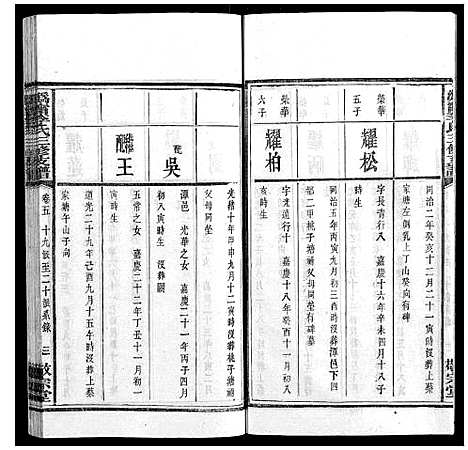 榮華
五子
耀松
字長青行八 嘉慶十六年辛未四月十八子
時生
同治五年丙寅九月初三寅時沒葬潭邑下四
都二甲桃子塘衬父母同塋有碑墓
榮華
六子
耀柏
字光遠行 嘉慶十八年癸酉十一月
亥時生
同治二年癸亥十二月二十一寅時沒葬上蔡
家塘左側乳上丁山癸向有碑
配
吳
潭邑 光華之女 嘉慶二十一年丙子四月
初八寅時生 沒葬闕
繼配
王
五常之女 嘉慶二十二年丁丑十一月初一
時生
道光二十九年己酉九月十五午時沒葬上蔡
家塘午山子向
光緒十年甲申九月十二寅時沒葬桃子塘衬
父母同塋
卷五 十九派至二十派系錄 三 敬宗堂